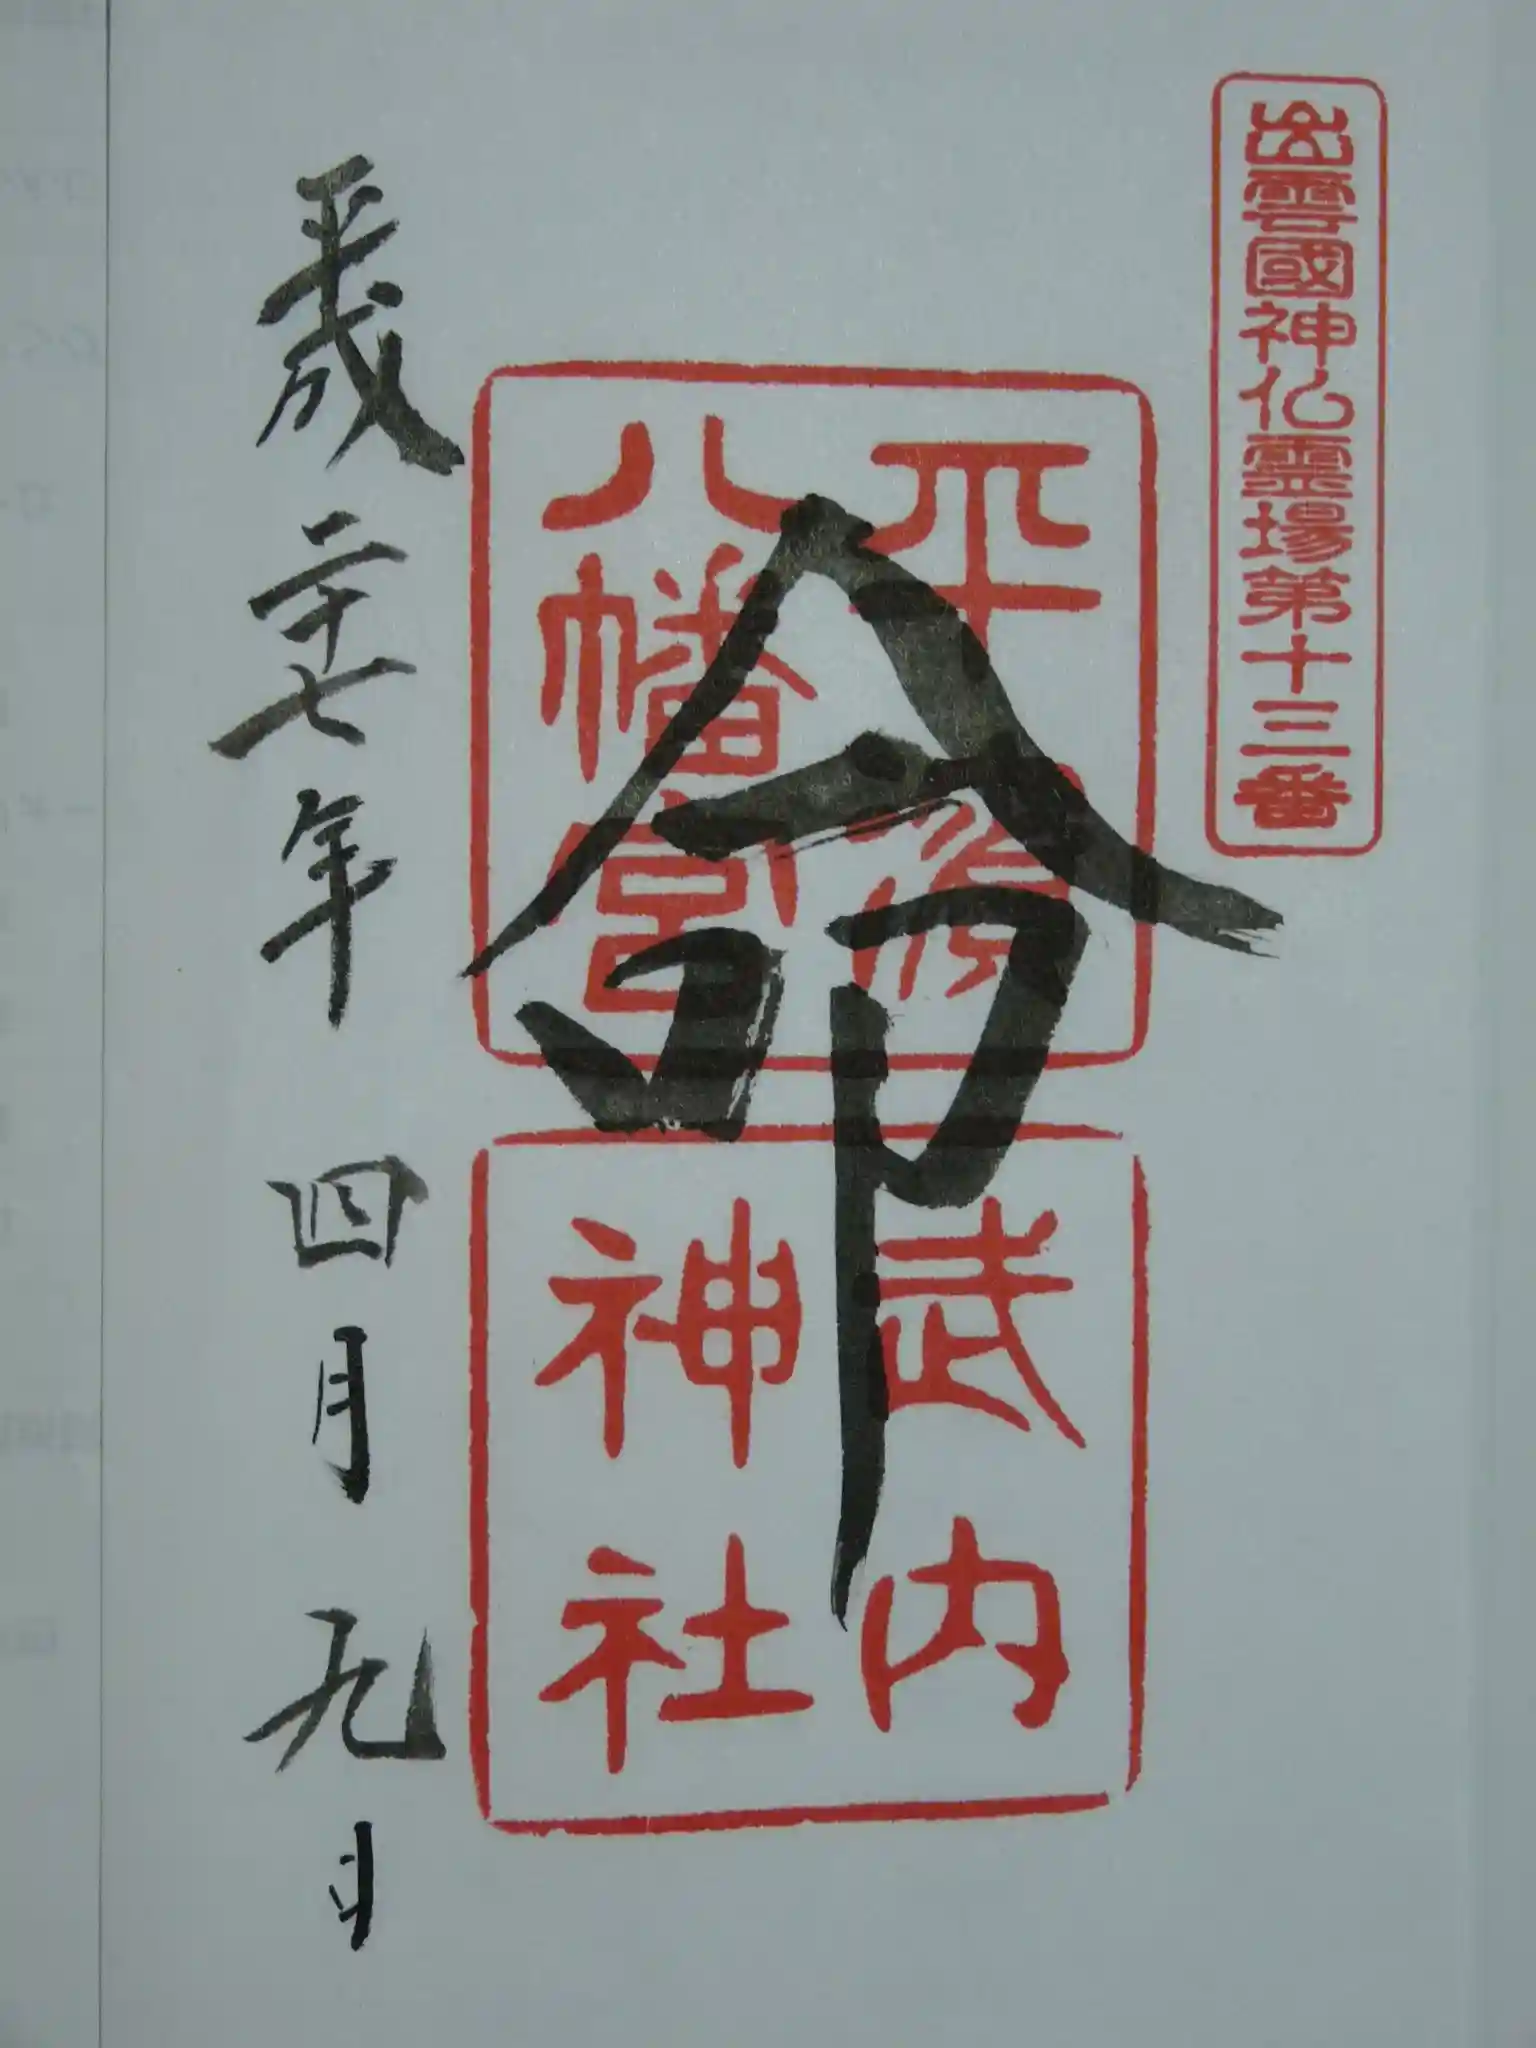 出雲國神仏霊場第十三番
平濱
八幡宮
武内
神社
命
平成二十七年四月九日